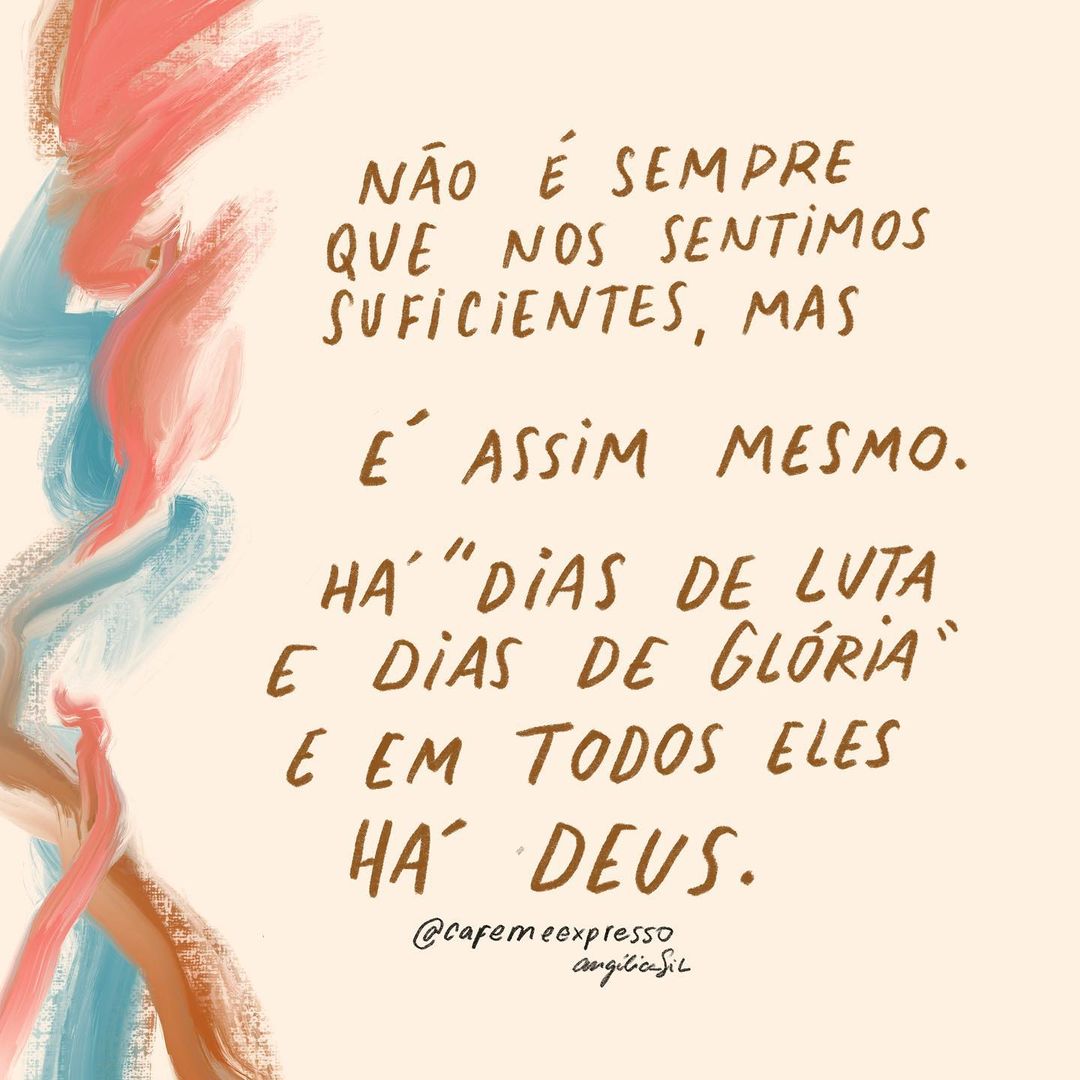 NÃO É SEMPRE
QUE NOS SENTIMOS
SUFICIENTES, MAS
É ASSIM MESMO.
HÁ "DIAS DE LUTA
E DIAS DE GLÓRIA"
E EM TODOS ELES
HÁ DEUS.
@cafemeexpresso
angélicaSiL